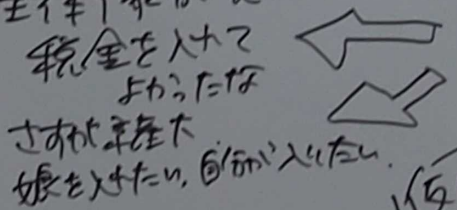 税金を入れて
よかったな
さすが京産大
娘を入れたい, 自分が入りたい.